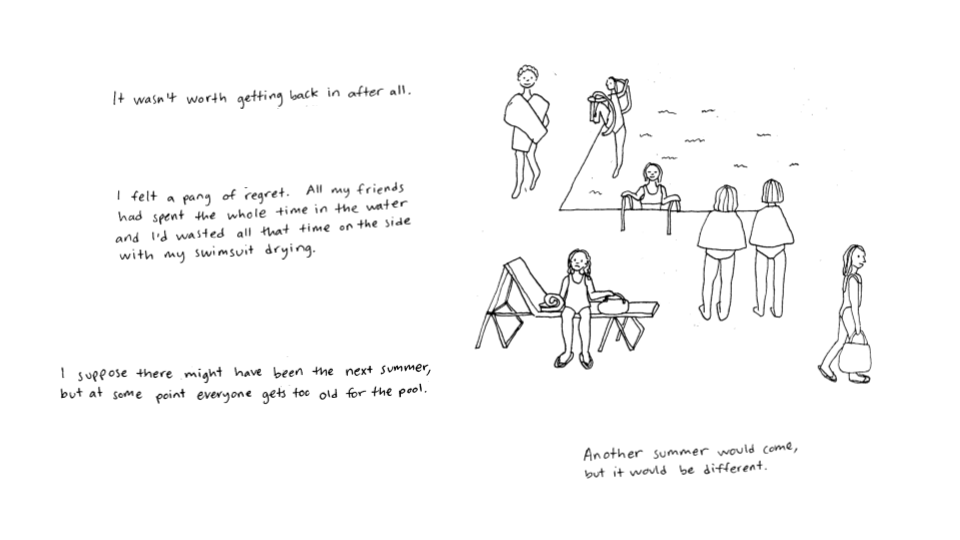 It wasn't worth getting back in after all.
I felt a pang of regret. All my friends
had spent the whole time in the water
and I'd wasted all that time on the side
with my swimsuit drying.
I suppose there might have been the next summer,
but at some point everyone gets too old for the pool.
Another summer would come,
but it would be different.